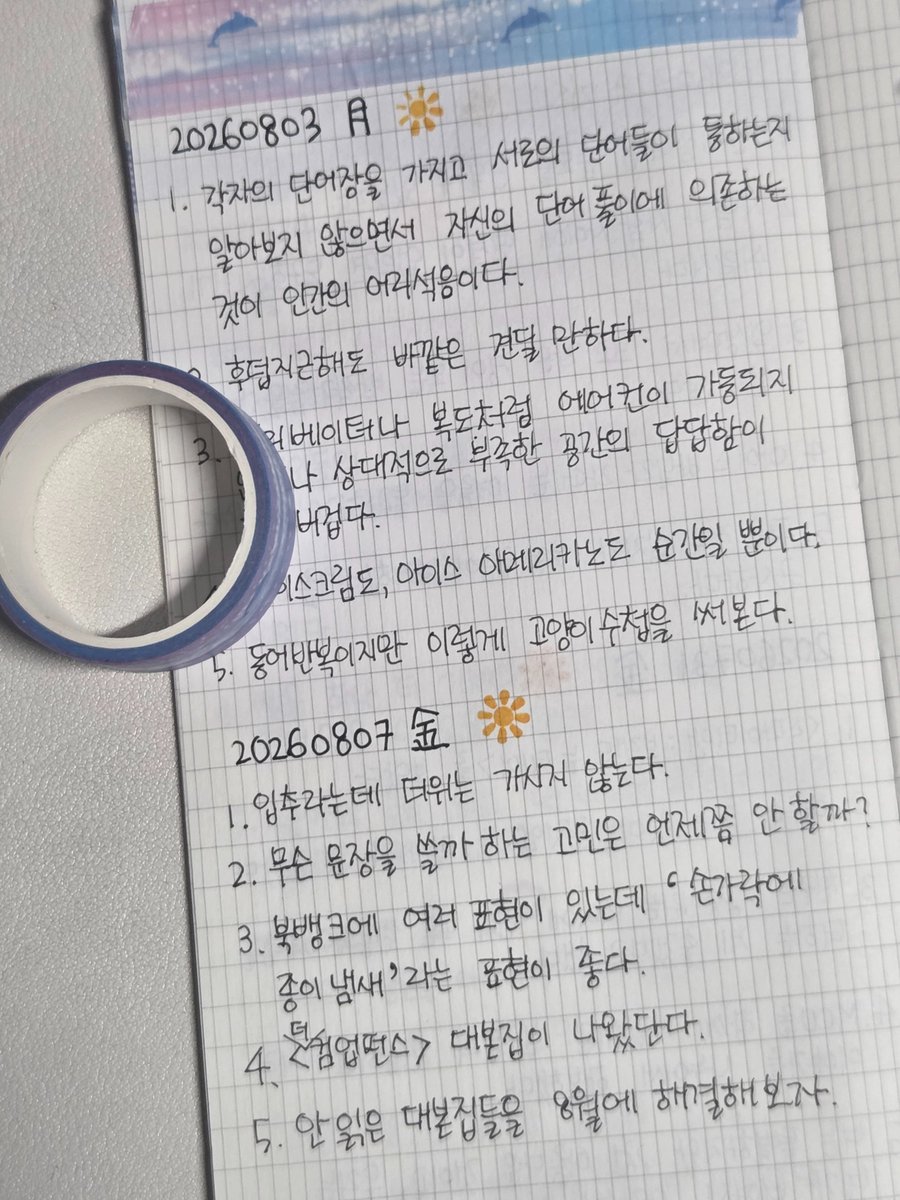 20260803 月
1. 각자의 단어장을 가지고 서로의 단어들이 통하는지
알아보지 않으면서 자신의 단어풀이에 의존하는
것이 인간의 어리석음이다.
후덥지근해도 바깥은 견딜 만하다.
3. 베이터나 복도처럼 에어컨이 가동되지
나 상대적으로 부족한 공간의 답답함이
버겁다.
이스크림도, 아이스 아메리카노도 순간일 뿐이다.
5. 동어반복이지만 이렇게 고양이수첩을 써본다.
20260807 金
1. 입추라는데 더위는 가시지 않는다.
2. 무슨 문장을 쓸까 하는 고민은 언제쯤 안 할까?
3. 북뱅크에 여러 표현이 있는데 '손가락에
종이 냄새'라는 표현이 좋다.
4. <더 컴업펀스> 대본집이 나왔단다.
5. 안 읽은 대본집들을 8월에 해결해보자.